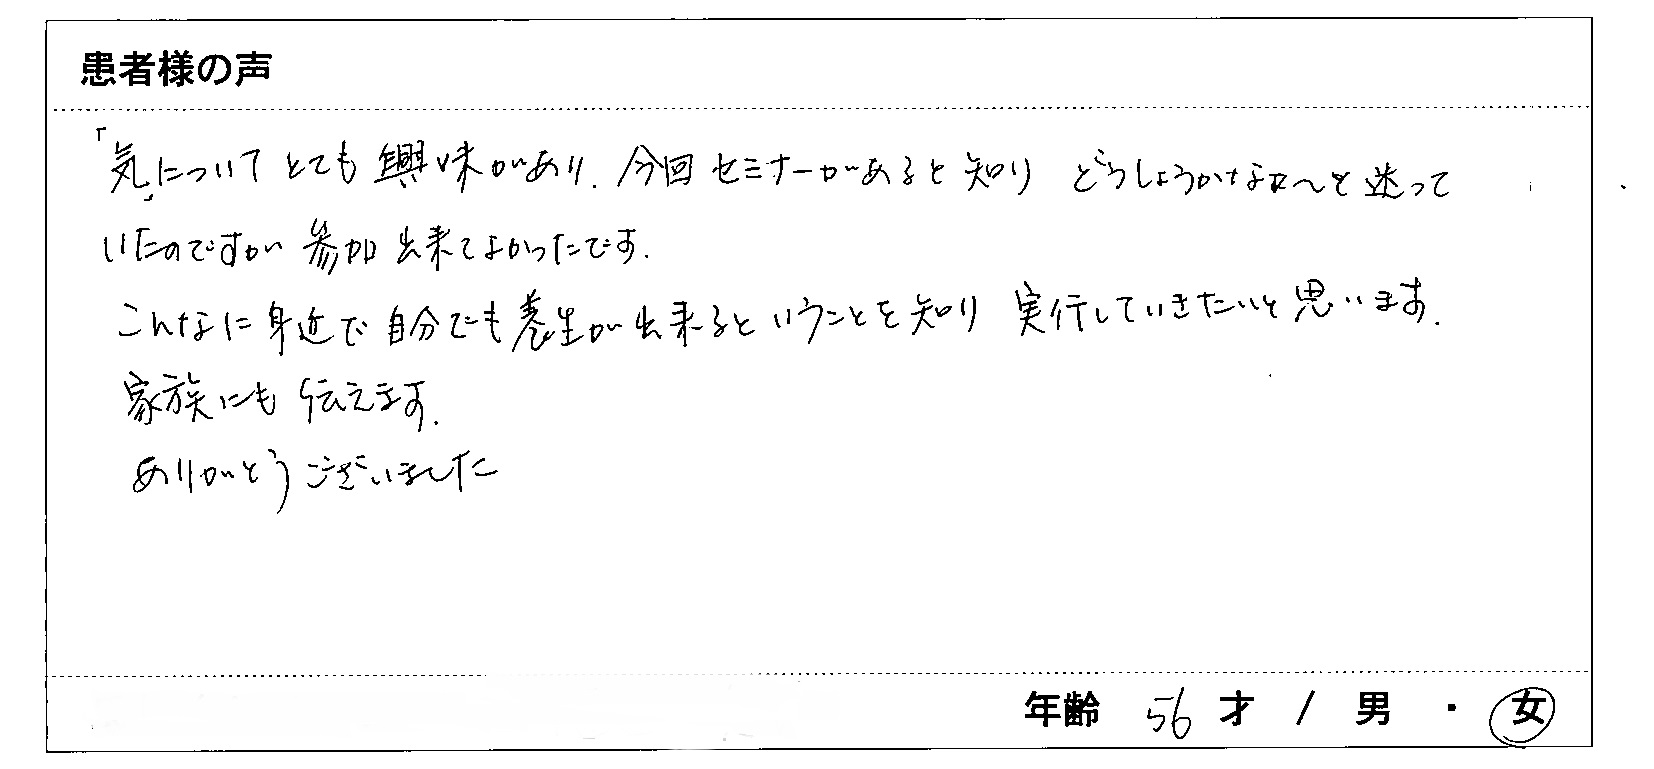 患者様の声
「気」について とても 興味があり、今回 セミナーがあると 知り どうしようかなぁ〜と 迷って
いたのですが 参加 出来てよかったです.
こんなに 身近で 自分でも 養生が 出来ると いうことを 知り 実行していきたいと 思います.
家族にも 伝えます.
ありがとう ございました
年齢 56 才 / 男 ・ 女